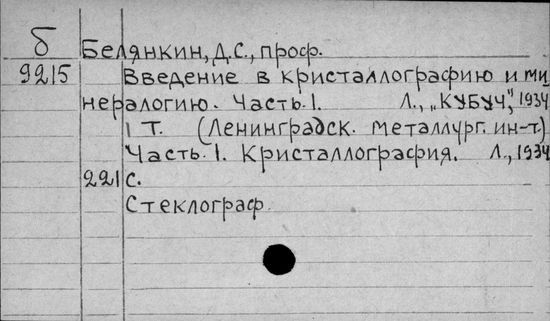 б
Белянкин, Д.С., проф.
9215 Введение в кристаллографию и ми
нералогию. Часть.1. Л., „КУБУЧ", 1934
1 т. (Ленинградск. металлург. ин-т)
Часть.1. Кристаллография. Л., 1934
221 с.
Стеклограф.